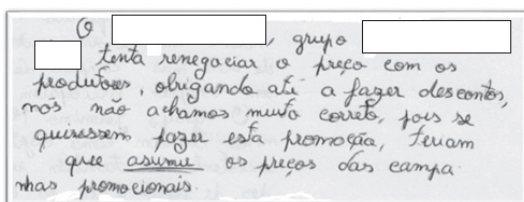 O , grupo
tenta renegociar o preço com os
produtores, obrigando até a fazer descontos,
nós não achamos muito correto, pois se
quisessem fazer esta promoção, teriam
que asumir os preços das campa-
nhas promocionais.